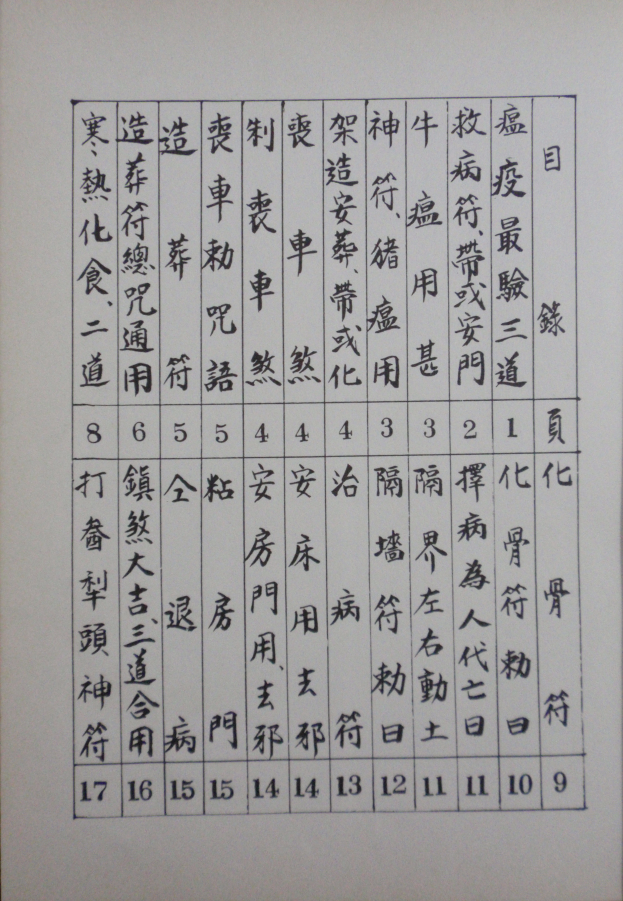 目錄 頁
瘟疫最驗三道 1
救病符、帶或安門 2
牛瘟用甚 3
神符、豬瘟用 3
架造安葬、帶或化 4
喪車煞 4
制喪車煞 4
喪車勅咒語 5
造葬符 5
造葬符總咒通用 6
寒、熱化食、二道 8
化骨符 9
化骨符勅曰 10
擇病為人代亡曰 11
隔界左右動土 11
隔墻符勅曰 12
治病符 13
安床用去邪 14
安房門用、去邪 14
粘房門 15
仝退病 15
鎮煞大吉、三道合用 16
打犁頭神符 17